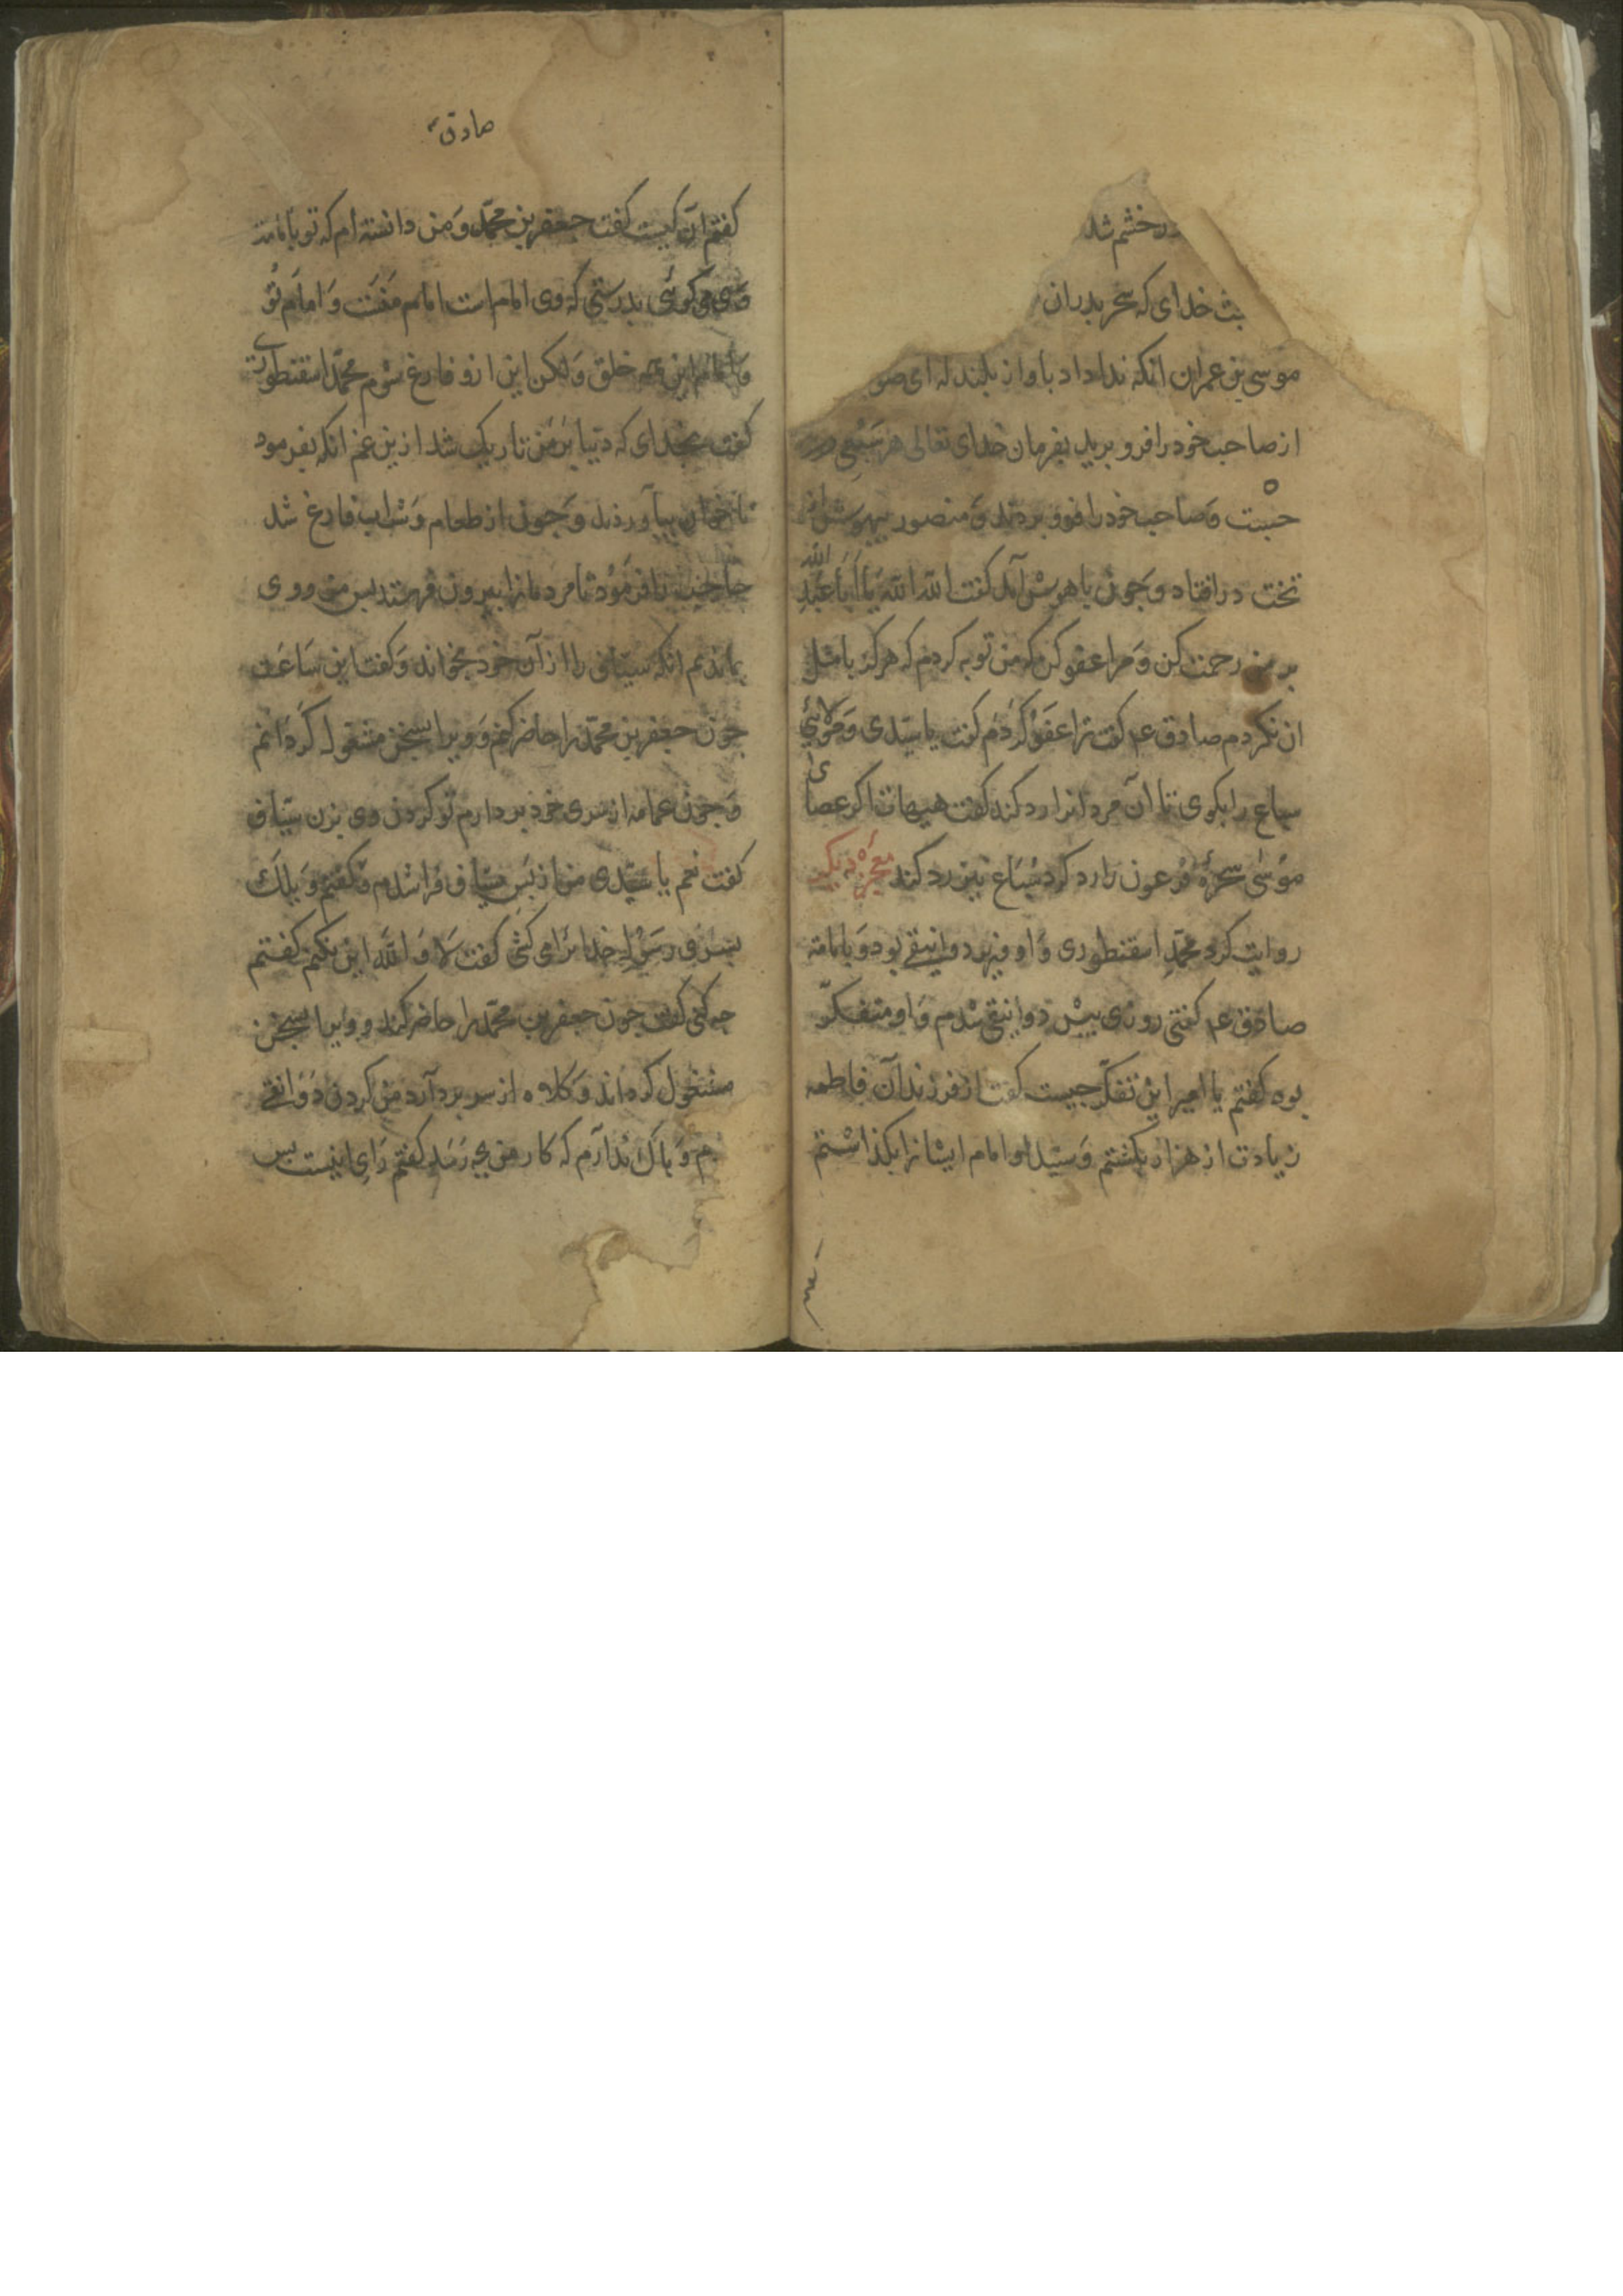 در خشم شد
خدای که سحر بدران
موسی بن عمران انکه نداداد باواز بلند که ای صو
از صاحب خود را فرو برید بفرمان خدای تعالی هر سبعی
جست و صاحب خود را فرو بردند و منصور بیهوش از
تخت در افتاد و چون باهوش آمد کفت الله الله یا ابا عبد الله
بر من رحمت کن و مرا عفو کن که من توبه کردم که هرکز بامثل
ان نکردم صادق ع کفت ترا عفو کردم کفت یا سیدی و مولائی
سباع را بکوی تا آن مردانرا رد کند کفت هیهات اکر عصای
موسی سحرهٔ فرعون را رد کرد سباع نیز رد کند معجزهٔ دیکر
روایت کرد محمد اسقنطوری و او وزیر دوانیقی بود و بامامة
صادق ع کفتی روزی پیش دوانیقی شدم و او متفکر
بود کفتم یا امیر این تفکر چیست کفت از فرزندان فاطمه
زیادت از هزار بکشتم و سید و امام ایشانرا بکذاشتم
صادق
کفتم آن کیست کفت جعفر بن محمد و من دانسته ام که تو بامامة
وی می کوئی بدرستی که وی امام است امام منست و امام تو
و امام این همه خلق و لکن این ازو فارغ شوم محمد اسقنطوری
کفت بخدای که دنیا بر من تاریک شد ازین غم انکه بفرمود
تا خوان بیاوردند و چون از طعام و شراب فارغ شد
حاجب را فرمود تا مردمانرا بیرون فرستد پس من و وی
بماندیم انکه سیافی را از آن خود بخواند و کفت این ساعت
چون جعفر بن محمد را حاضر کنم و ویرا بسخن مشغول کردانم
و چون عمامه از سری خود بردارم تو کردن وی بزن سیاف
کفت نعم یا سیدی من از پس سیاف فرا شدم و کفتم ویلک
پسر رسول خدا را می کشی کفت لا و الله این نکنم کفتم
چه کنی کفت چون جعفر بن محمد را حاضر کند و ویرا بسخن
مشغول کرداند و کلاه از سر بردارد من کردن دوانقی
م و باک ندارم که کار من بچه رسد کفتم رای اینست پس